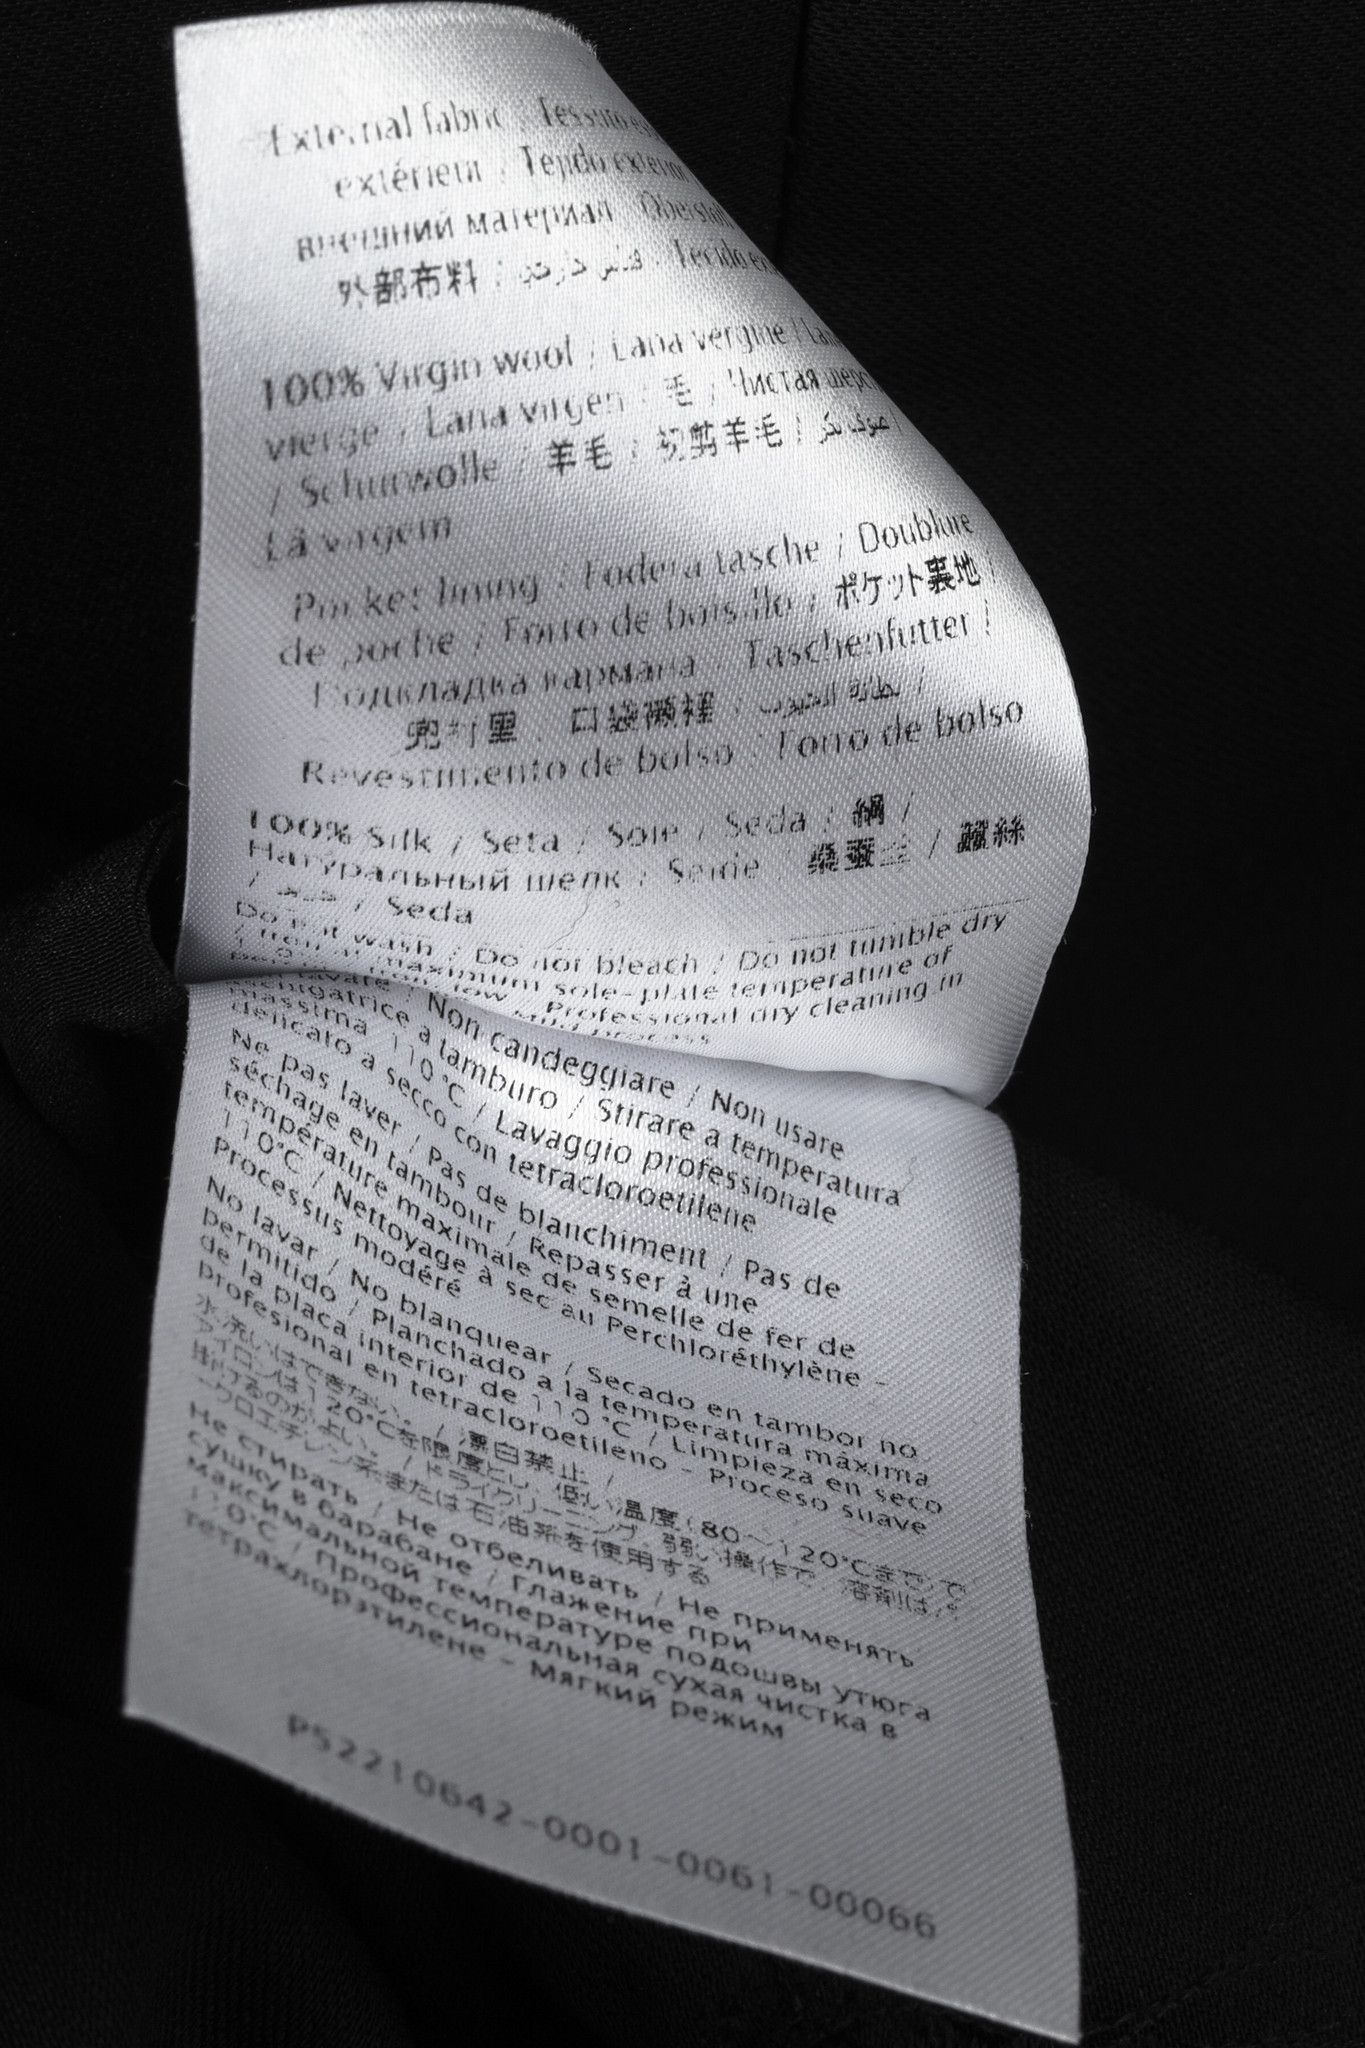 External fabric / Tessuto
extérieur / Tejido exterior
внешний материал / Oberstoff
外部布料 / Tecido
100% Virgin wool / Lana vergine /
vierge / Lana virgen / 毛 / Чистая
/ Schurwolle / 羊毛 / 初剪羊毛 / صوف بكر /
Lã virgem
Pocket lining / Fodera tasche / Doublure
de poche / Forro de bolsillo / ポケット裏地 /
Подкладка кармана / Taschenfutter /
兜衬里 / 口袋襯裡 / بطانة الجيوب /
Revestimento de bolso / Forro de bolso
100% Silk / Seta / Soie / Seda / 絹 /
Натуральный шелк / Seide / 桑蚕丝 / 蠶絲
/ / Seda
Do not wash / Do not bleach / Do not tumble dry
/ maximum sole-plate temperature of
Professional dry cleaning in
Mild process
lavare / Non candeggiare / Non usare
asciugatrice a tamburo / Stirare a temperatura
massima 110°C / Lavaggio professionale
delicato a secco con tetracloroetilene
Ne pas laver / Pas de blanchiment / Pas de
séchage en tambour / Repasser à une
température maximale de semelle de fer de
110°C / Nettoyage à sec au Perchloréthylène -
Processus modéré
No lavar / No blanquear / Secado en tambor no
permitido / Planchado a la temperatura máxima
de la placa interior de 110°C / Limpieza en seco
profesional en tetracloroetileno - Proceso suave
水洗いはできない。 / 漂白禁止 /
アイロンは120°Cを限度とし、低い温度(80〜120°Cまで)で
掛けるのがよい。 / ドライクリーニング。弱い操作で、溶剤はパ
ークロエチレン系または石油系を使用する
Не стирать / Не отбеливать / Не применять
сушку в барабане / Глажение при
максимальной температуре подошвы утюга
110°C / Профессиональная сухая чистка в
тетрахлорэтилене - Мягкий режим
P52210642-0001-0061-00066